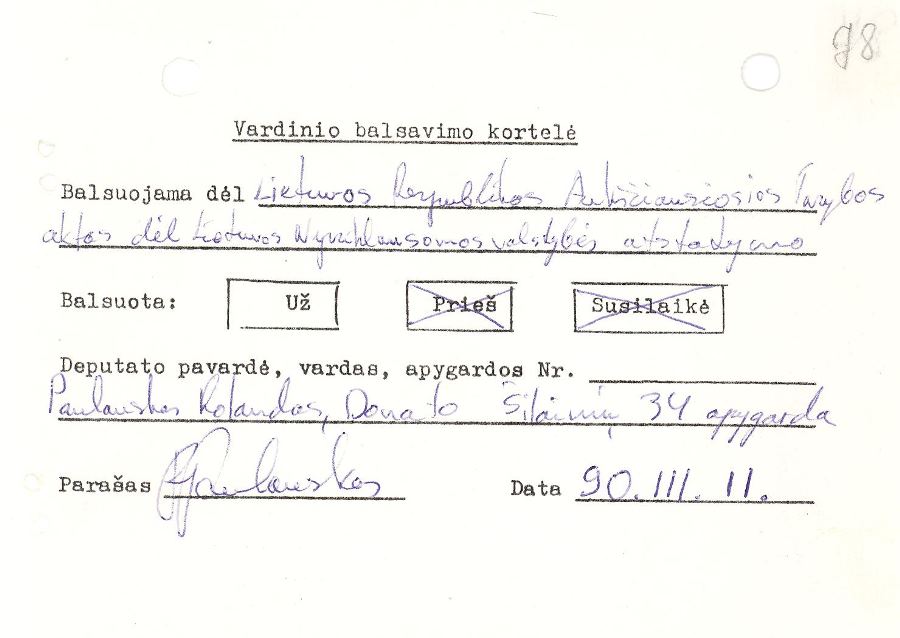 78
Vardinio balsavimo kortelė
Balsuojama dėl Lietuvos Respublikos Aukščiausiosios Tarybos
aktas dėl Lietuvos Nepriklausomos valstybės atstatymo
Balsuota: Už Prieš Susilaikė
Deputato pavardė, vardas, apygardos Nr.
Paulauskas Rolandas, Donato Šilainių 34 apygarda
Parašas RPaulauskas Data 90.III.11.